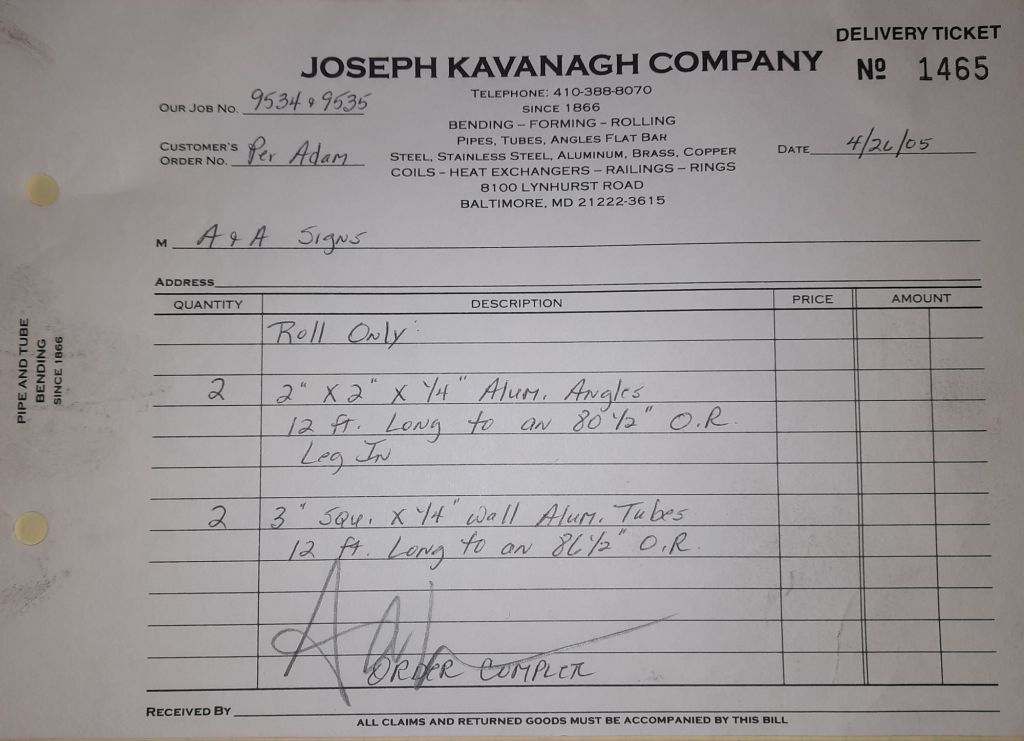 DELIVERY TICKET
JOSEPH KAVANAGH COMPANY
Nº 1465
TELEPHONE: 410-388-8070
SINCE 1866
BENDING – FORMING – ROLLING
PIPES, TUBES, ANGLES FLAT BAR
STEEL, STAINLESS STEEL, ALUMINUM, BRASS, COPPER
COILS – HEAT EXCHANGERS – RAILINGS – RINGS
8100 LYNHURST ROAD
BALTIMORE, MD 21222-3615
OUR JOB NO. 9534 & 9535
CUSTOMER'S
ORDER NO. Per Adam
DATE 4/26/05
M A & A Signs
ADDRESS
QUANTITY DESCRIPTION PRICE AMOUNT
Roll Only:
2 2" X 2" X 1/4" Alum. Angles
12 ft. Long to an 80 1/2" O.R.
Leg In
2 3" Squ. X 1/4" Wall Alum. Tubes
12 ft. Long to an 86 1/2" O.R.
ORDER COMPLETE
RECEIVED BY
ALL CLAIMS AND RETURNED GOODS MUST BE ACCOMPANIED BY THIS BILL
PIPE AND TUBE
BENDING
SINCE 1866